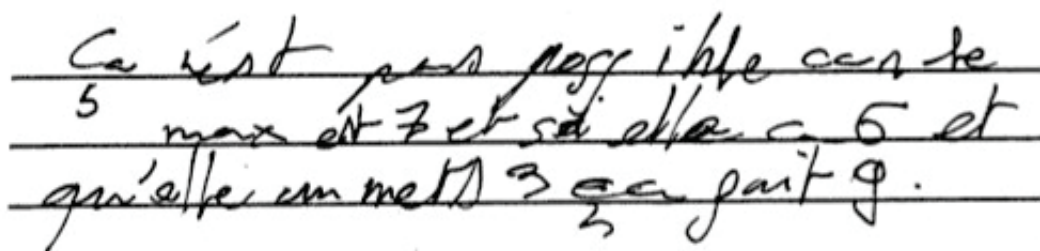 Ça n'est pas possible car le
max est 7 et si elle a 6 et
qu'elle en mets 3 ça fait 9.